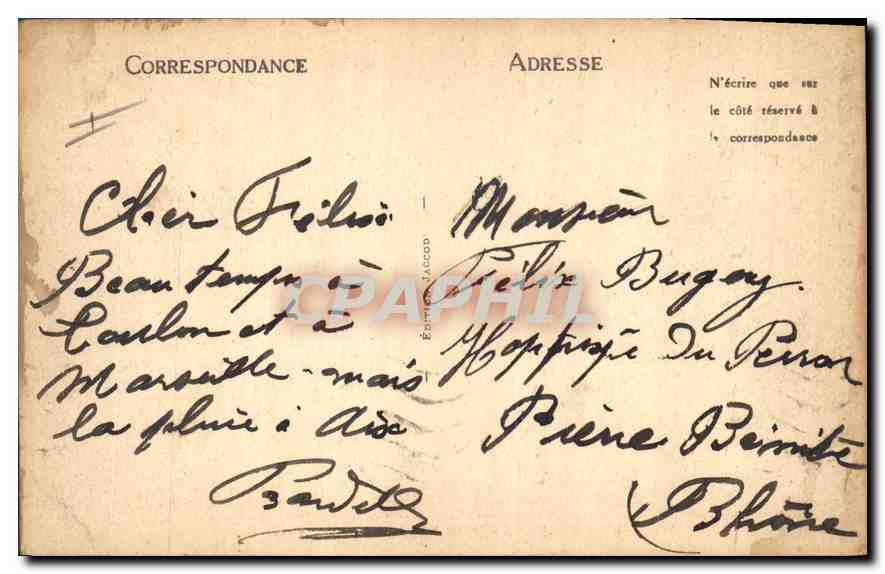 CORRESPONDANCE
Cher Félix
Beau temps à
Toulon et à
Marseille - mais
la pluie à Aix
ÉDITION JACCOD
ADRESSE
N'écrire que sur
le côté réservé à
la correspondance
Monsieur
Félix Bugey.
Hospice du Perron
Pierre Bénite
Rhône
CPAPHIL